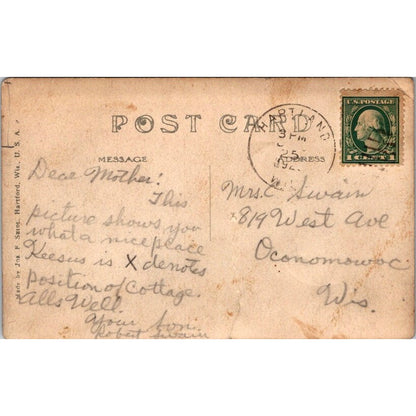 POST CARD
MESSAGE
ADDRESS
Dear Mother:
This
picture shows you
what a nice place
Keesus is X denotes
position of cottage.
Alls Well.
Your son.
Robert Swain
Mrs. C. Swain
819 West Ave
Oconomowoc
Wis.
HARTLAND
PM
25
WIS
U.S. POSTAGE
1 CENT 1
Made by Jos. F. Sause, Hartford, Wis., U. S. A.